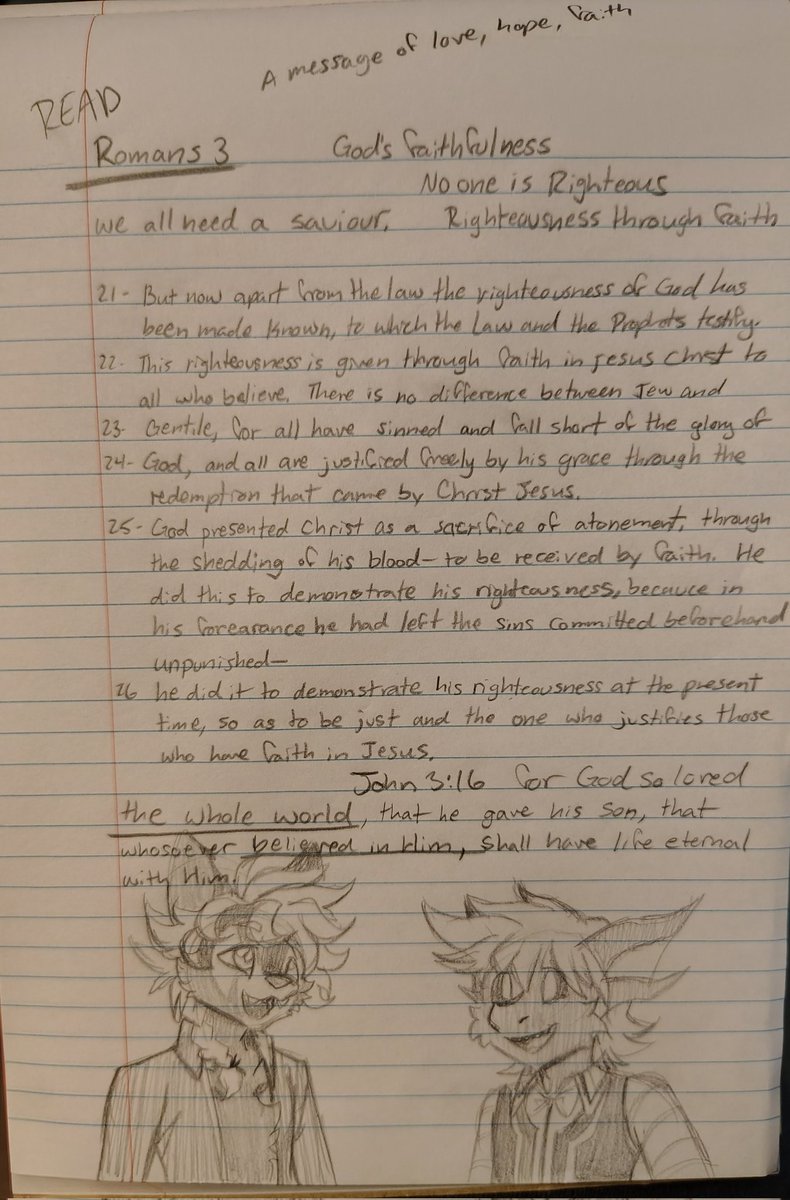 A message of love, hope, faith
READ
Romans 3 God's faithfulness
No one is Righteous
we all need a saviour. Righteousness through faith
21- But now apart from the law the righteousness of God has
been made known, to which the Law and the Prophets testify.
22- This righteousness is given through faith in Jesus Christ to
all who believe. There is no difference between Jew and
23- Gentile, for all have sinned and fall short of the glory of
24- God, and all are justified freely by his grace through the
redemption that came by Christ Jesus.
25- God presented Christ as a sacrifice of atonement, through
the shedding of his blood— to be received by faith. He
did this to demonstrate his righteousness, because in
his forearance he had left the sins committed beforehand
unpunished—
26 he did it to demonstrate his righteousness at the present
time, so as to be just and the one who justifies those
who have faith in Jesus.
John 3:16 for God so loved
the whole world, that he gave his son, that
whosoever believed in Him, shall have life eternal
with Him.